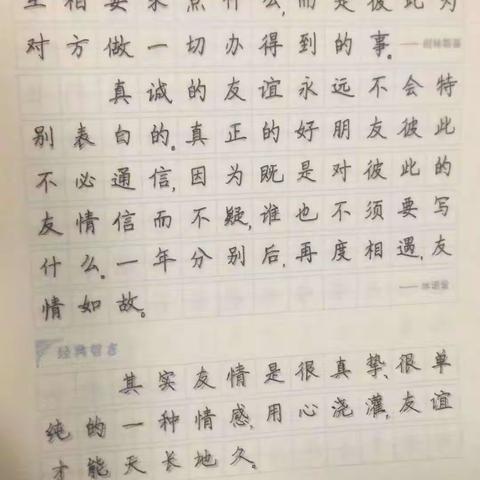 互相要求点什么,而是彼此为
对方做一切办得到的事。
真诚的友谊永远不会特
别表白的。真正的好朋友彼此
不必通信,因为既是对彼此的
友情信而不疑,谁也不须要写
什么。一年分别后,再度相遇,友
情如故。
经典留言
其实友情是很真挚、很单
纯的一种情感,用心浇灌,友谊
才能天长地久。